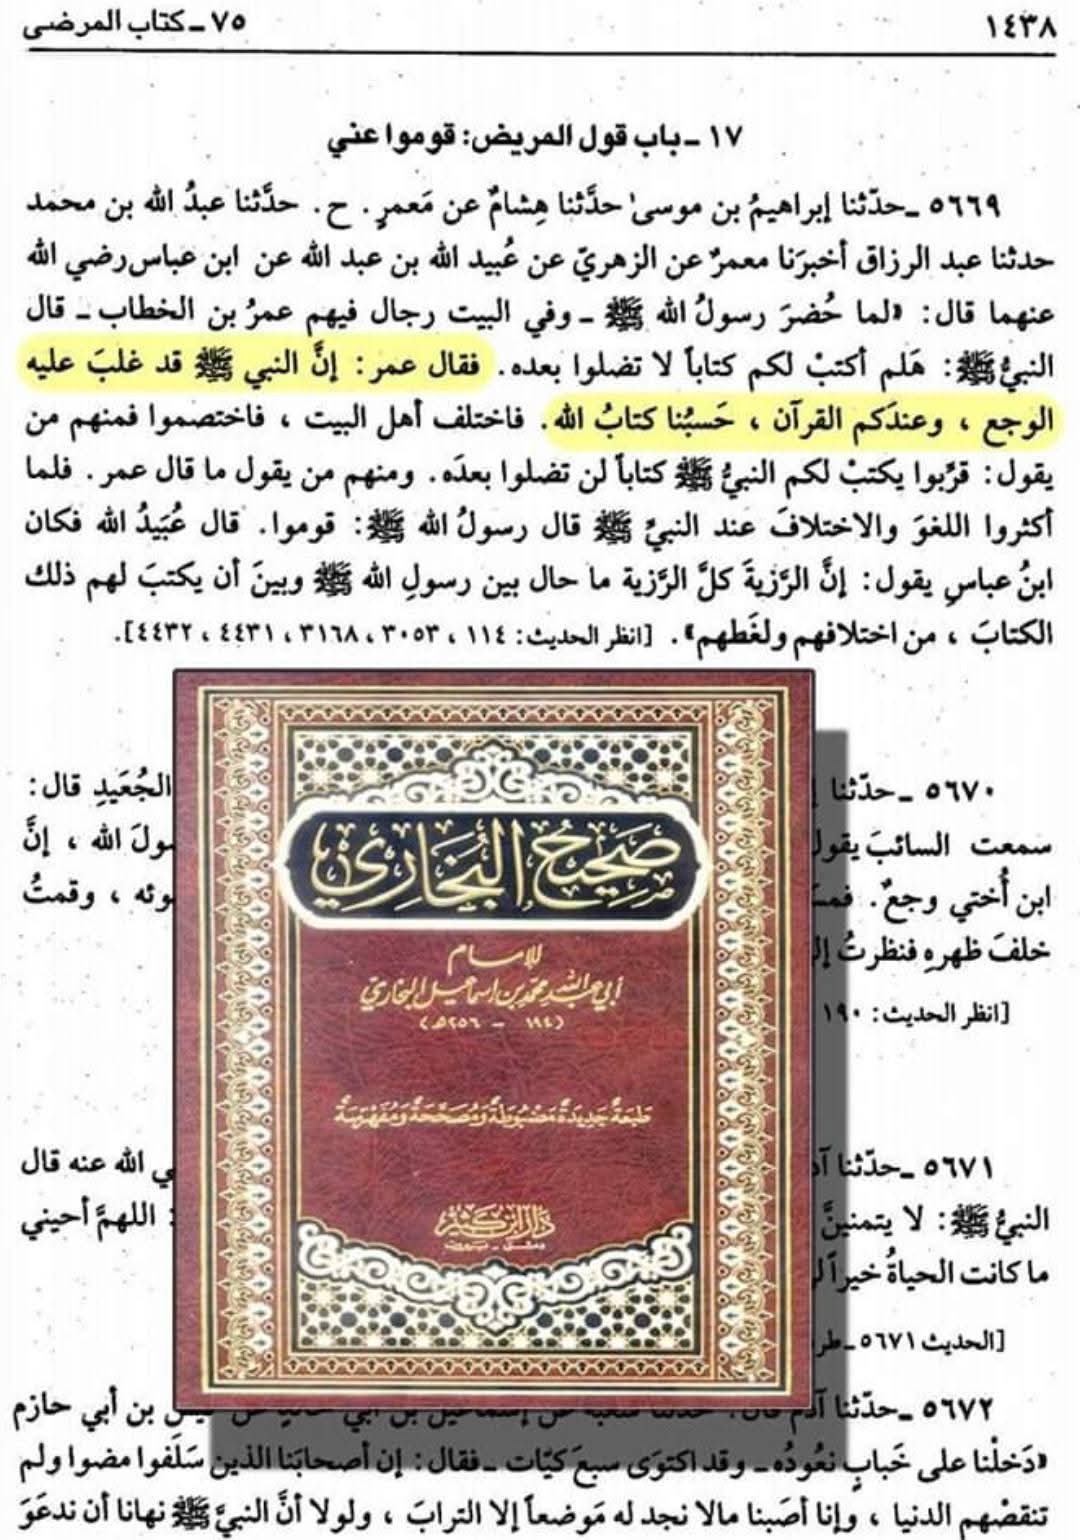 ١٤٣٨
٧٥ ـ كتاب المرضى
١٧ ـ باب قول المريض: قوموا عني
٥٦٦٩ ـ حدّثنا إبراهيمُ بن موسىٰ حدَّثنا هِشامٌ عن مَعمرٍ. ح. حدَّثنا عبدُ الله بن محمد
حدثنا عبد الرزاق أخبرَنا معمرٌ عن الزهريّ عن عُبيد الله بن عبد الله عن ابن عباس رضي الله
عنهما قال: «لما حُضرَ رسولُ الله ﷺ ـ وفي البيت رجال فيهم عمرُ بن الخطاب ـ قال
النبيُّ ﷺ: هَلم أكتبْ لكم كتاباً لا تضلوا بعده. فقال عمر: إنَّ النبي ﷺ قد غلبَ عليه
الوجع، وعندَكم القرآن، حَسبُنا كتابُ الله. فاختلف أهل البيت، فاختصموا فمنهم من
يقول: قرِّبوا يكتبْ لكم النبيُّ ﷺ كتاباً لن تضلوا بعدَه. ومنهم من يقول ما قال عمر. فلما
أكثروا اللغوَ والاختلافَ عند النبيِّ ﷺ قال رسولُ الله ﷺ: قوموا. قال عُبَيدُ الله فكان
ابنُ عباسٍ يقول: إنَّ الرَّزيةَ كلَّ الرَّزية ما حال بين رسولِ الله ﷺ وبينَ أن يكتبَ لهم ذلك
الكتابَ، من اختلافهم ولغَطهم». [انظر الحديث: ١١٤، ٣٠٥٣، ٣١٦٨، ٤٤٣١، ٤٤٣٢].
٥٦٧٠ ـ حدّثنا الجُعَيدِ قال:
سمعت السائبَ يقول الله، إنَّ
ابن أُختي وجعٌ. وقمتُ
خلفَ ظهرهِ فنظرتُ
[انظر الحديث: ١٩٠
٥٦٧١ ـ حدّثنا الله عنه قال
النبيُّ ﷺ: لا يتمنينَّ اللهمَّ أحيني
ما كانت الحياةُ خيراً
[الحديث ٥٦٧١ ـ
صَحِيحُ البُخَارِيّ
للإمام
أبي عبد الله محمد بن إسماعيل البخاري
(١٩٤ - ٢٥٦هـ)
طَبعَةٌ جَدِيدَةٌ مَضبُوطَةٌ وَمُصَحَّحَةٌ وَمُفَهْرَسَةٌ
دار ابن كثير
دمشق - بيروت
٥٦٧٢ ـ حدّثنا آدم بن أبي حازم
«دَخلْنا على خَبابٍ نعُودُه ـ وقد اكتوَى سبعَ كيّات ـ فقال: إن أصحابَنا الذين سَلَفوا مضوا ولم
تنقصْهم الدنيا، وإنا أصَبنا مالا نجد له مَوضعاً إلا الترابَ، ولولا أنَّ النبيَّ ﷺ نهانا أن ندعوَ